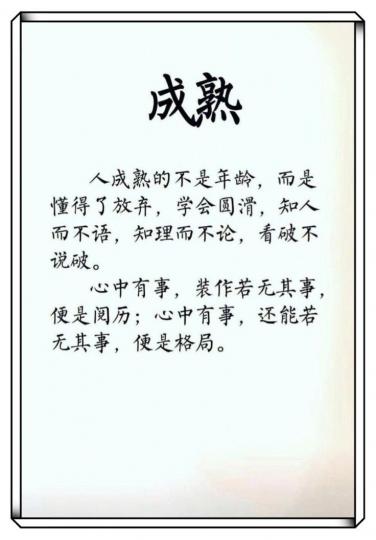 成熟
人成熟的不是年龄，而是
懂得了放弃，学会圆滑，知人
而不语，知理而不论，看破不
说破。
心中有事，装作若无其事，
便是阅历；心中有事，还能若
无其事，便是格局。